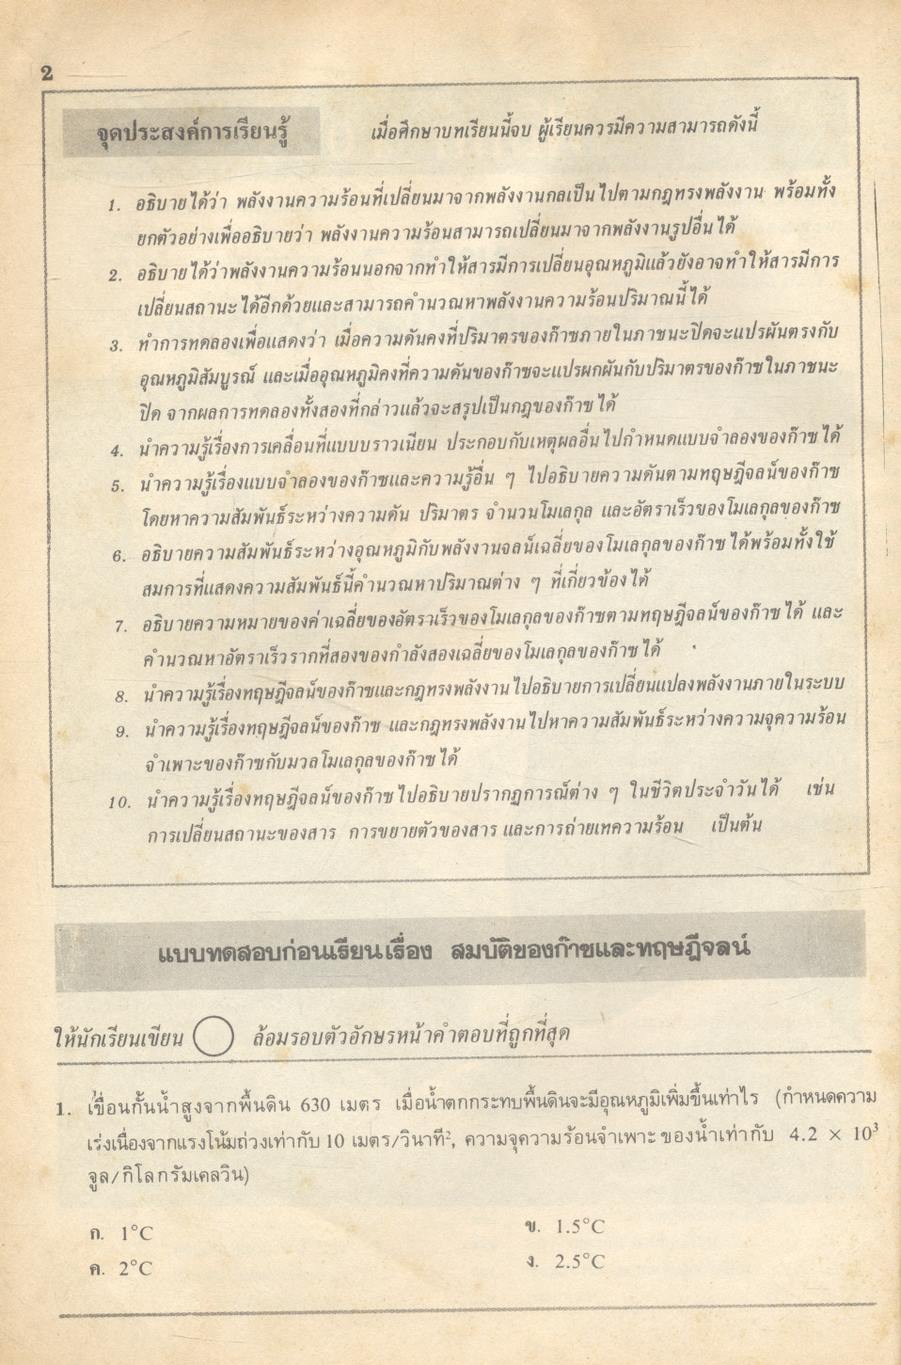 2
จุดประสงค์การเรียนรู้ เมื่อศึกษาบทเรียนนี้จบ ผู้เรียนควรมีความสามารถดังนี้
1. อธิบายได้ว่า พลังงานความร้อนที่เปลี่ยนมาจากพลังงานกลเป็นไปตามกฎทรงพลังงาน พร้อมทั้ง
ยกตัวอย่างเพื่ออธิบายว่า พลังงานความร้อนสามารถเปลี่ยนมาจากพลังงานรูปอื่นได้
2. อธิบายได้ว่าพลังงานความร้อนนอกจากทำให้สารมีการเปลี่ยนอุณหภูมิแล้วยังอาจทำให้สารมีการ
เปลี่ยนสถานะได้อีกด้วยและสามารถคำนวณหาพลังงานความร้อนปริมาณนี้ได้
3. ทำการทดลองเพื่อแสดงว่า เมื่อความดันคงที่ปริมาตรของก๊าซภายในภาชนะปิดจะแปรผันตรงกับ
อุณหภูมิสัมบูรณ์ และเมื่ออุณหภูมิคงที่ความดันของก๊าซจะแปรผกผันกับปริมาตรของก๊าซในภาชนะ
ปิด จากผลการทดลองทั้งสองที่กล่าวแล้วจะสรุปเป็นกฎของก๊าซได้
4. นำความรู้เรื่องการเคลื่อนที่แบบบราวเนียน ประกอบกับเหตุผลอื่นไปกำหนดแบบจำลองของก๊าซได้
5. นำความรู้เรื่องแบบจำลองของก๊าซและความรู้อื่น ๆ ไปอธิบายความดันตามทฤษฎีจลน์ของก๊าซ
โดยหาความสัมพันธ์ระหว่างความดัน ปริมาตร จำนวนโมเลกุล และอัตราเร็วของโมเลกุลของก๊าซ
6. อธิบายความสัมพันธ์ระหว่างอุณหภูมิกับพลังงานจลน์เฉลี่ยของโมเลกุลของก๊าซได้พร้อมทั้งใช้
สมการที่แสดงความสัมพันธ์นี้คำนวณหาปริมาณต่าง ๆ ที่เกี่ยวข้องได้
7. อธิบายความหมายของค่าเฉลี่ยของอัตราเร็วของโมเลกุลของก๊าซตามทฤษฎีจลน์ของก๊าซได้ และ
คำนวณหาอัตราเร็วรากที่สองของกำลังสองเฉลี่ยของโมเลกุลของก๊าซได้
8. นำความรู้เรื่องทฤษฎีจลน์ของก๊าซและกฎทรงพลังงานไปอธิบายการเปลี่ยนแปลงพลังงานภายในระบบ
9. นำความรู้เรื่องทฤษฎีจลน์ของก๊าซ และกฎทรงพลังงานไปหาความสัมพันธ์ระหว่างความจุความร้อน
จำเพาะของก๊าซกับมวลโมเลกุลของก๊าซได้
10. นำความรู้เรื่องทฤษฎีจลน์ของก๊าซไปอธิบายปรากฏการณ์ต่าง ๆ ในชีวิตประจำวันได้ เช่น
การเปลี่ยนสถานะของสาร การขยายตัวของสาร และการถ่ายเทความร้อน เป็นต้น
แบบทดสอบก่อนเรียนเรื่อง สมบัติของก๊าซและทฤษฎีจลน์
ให้นักเรียนเขียน ล้อมรอบตัวอักษรหน้าคำตอบที่ถูกที่สุด
1. เขื่อนกั้นน้ำสูงจากพื้นดิน 630 เมตร เมื่อน้ำตกกระทบพื้นดินจะมีอุณหภูมิเพิ่มขึ้นเท่าไร (กำหนดความ
เร่งเนื่องจากแรงโน้มถ่วงเท่ากับ 10 เมตร/วินาที², ความจุความร้อนจำเพาะของน้ำเท่ากับ 4.2 × 10³
จูล/กิโลกรัมเคลวิน)
ก. 1°C ข. 1.5°C
ค. 2°C ง. 2.5°C